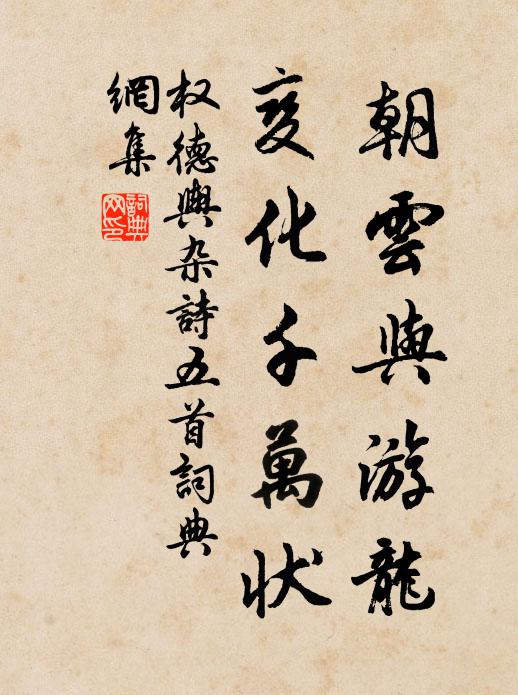 朝雲與游龍
变化千萬状
权德輿杂詩五首詞典
網集
詞典
网印